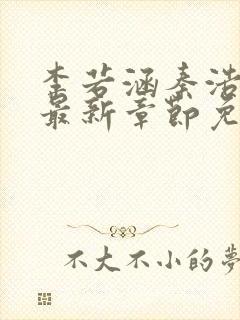 李若涵秦浩
最新章節免
不大不小的夢